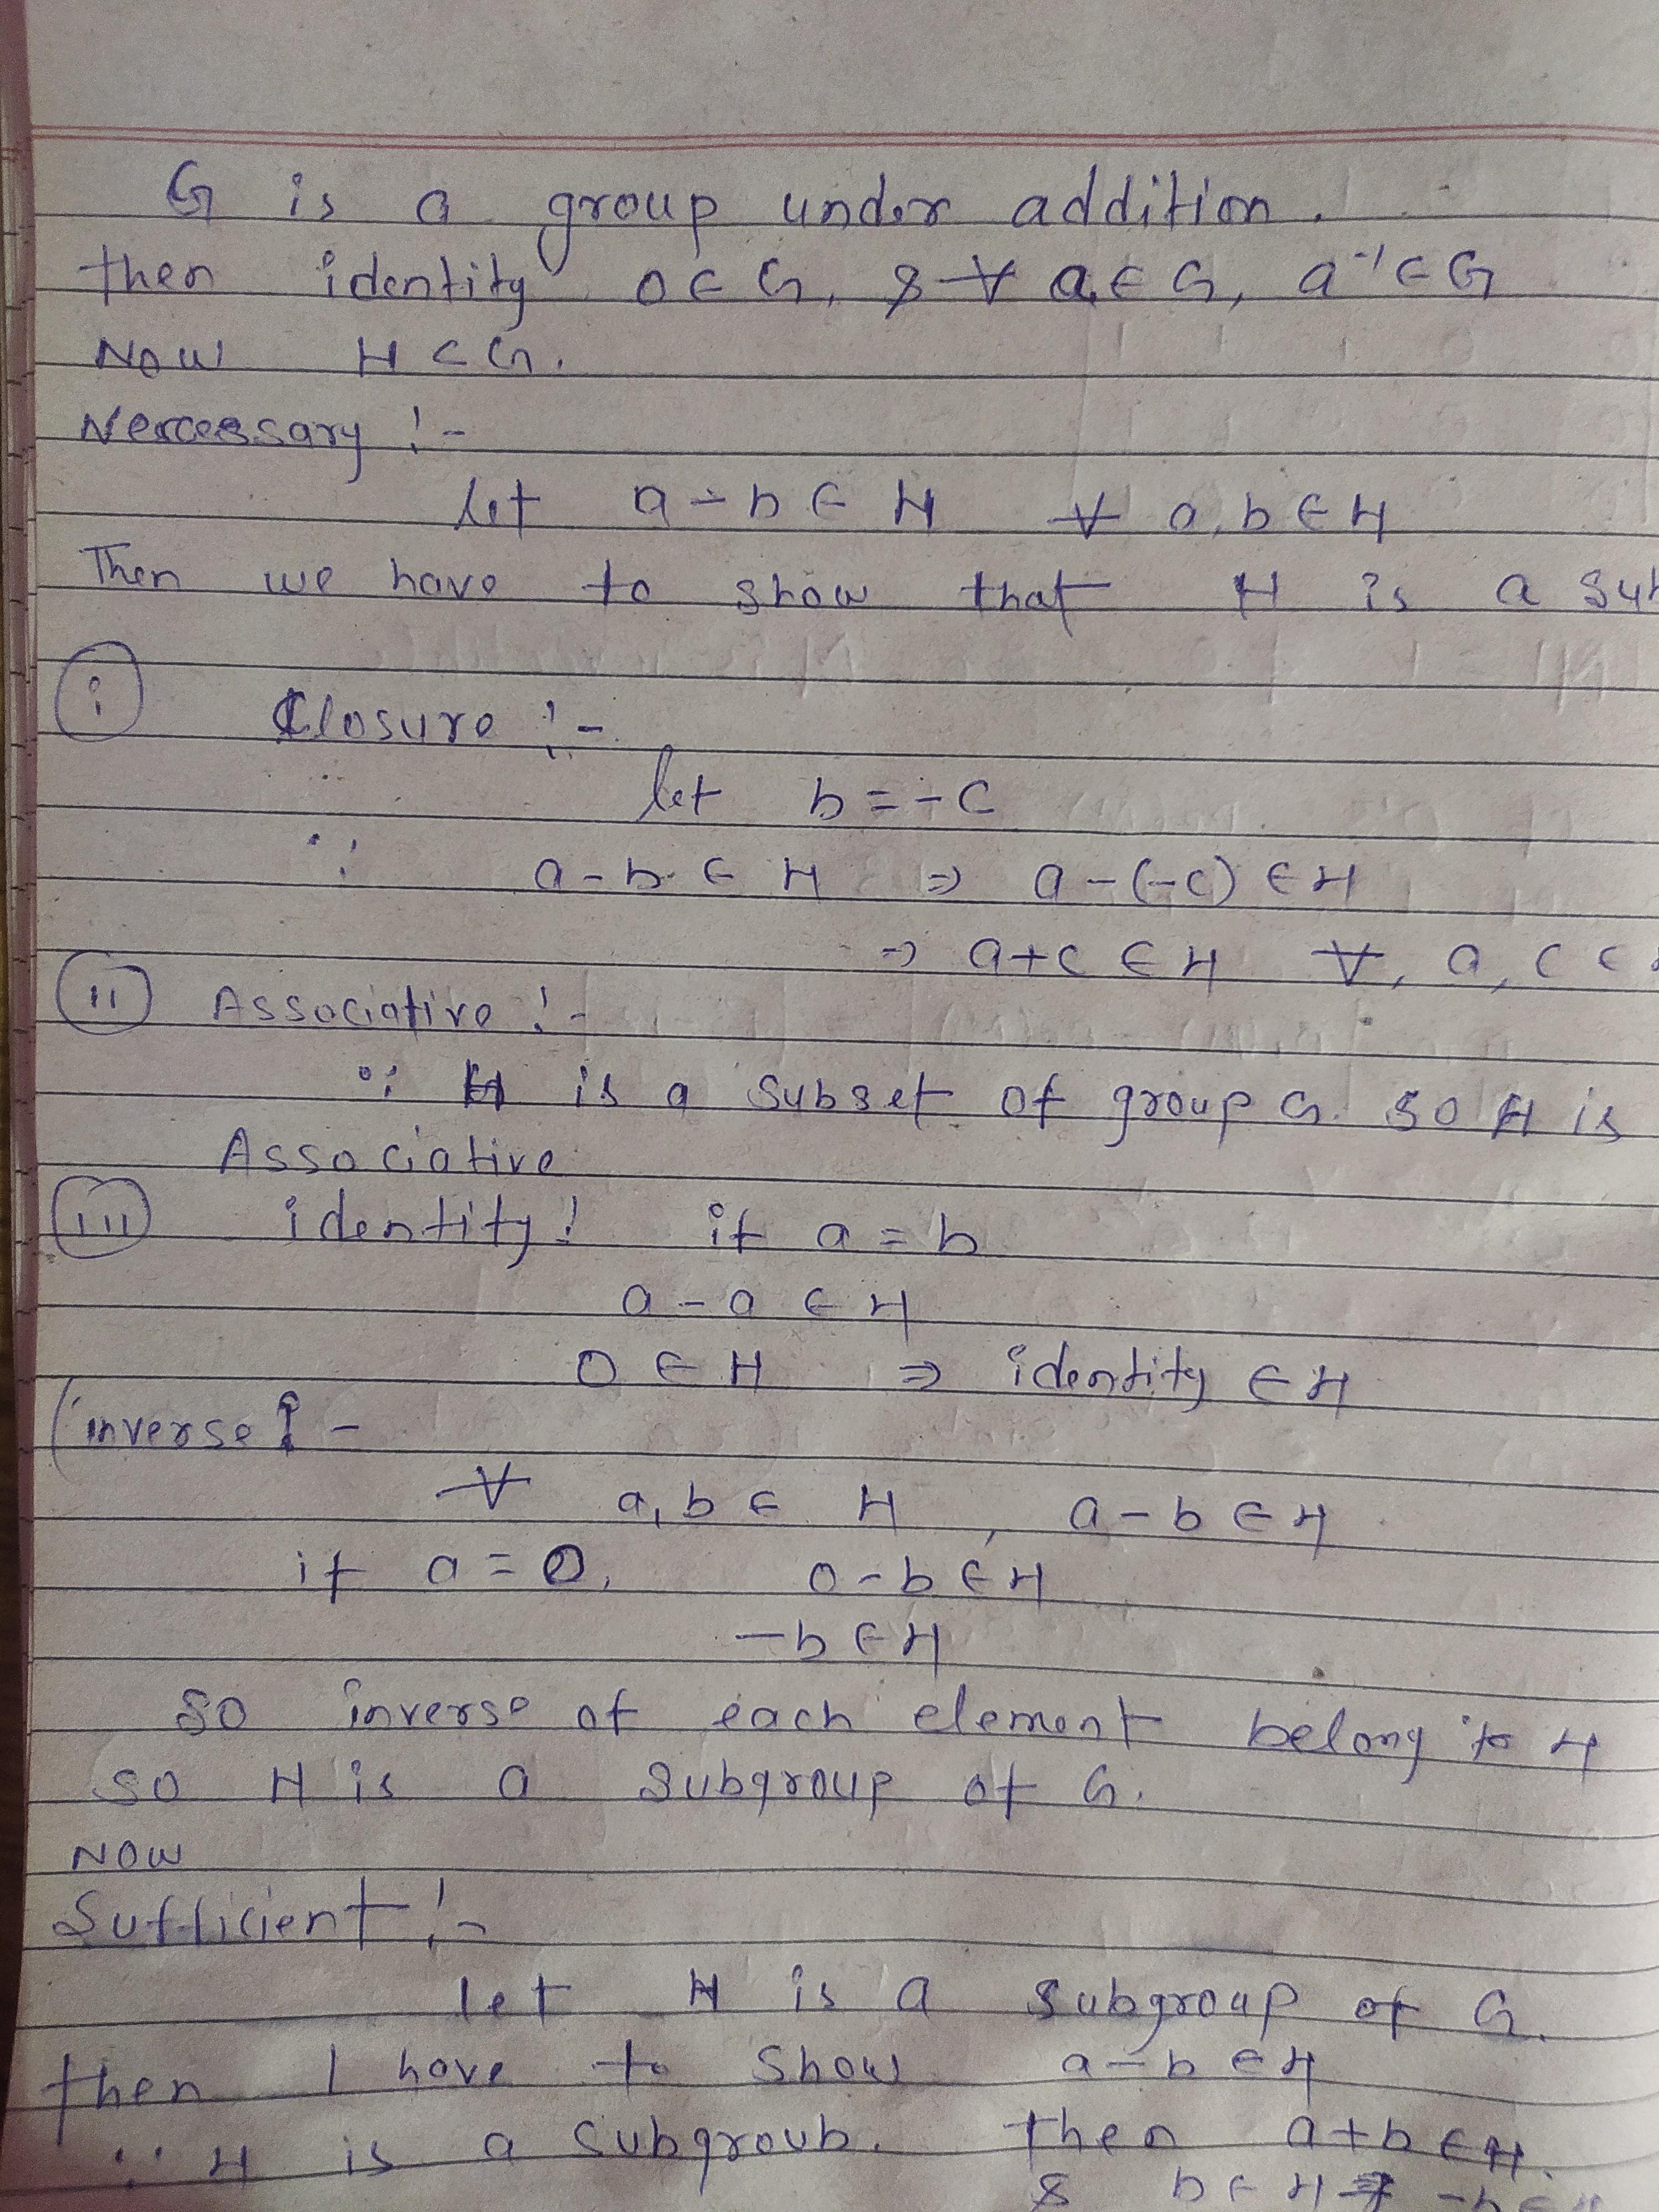 G is a group under addition.
then identity 0 ∈ G, & ∀ a ∈ G, a⁻¹ ∈ G
Now H ⊂ G.
Nercessary :-
let a - b ∈ H ∀ a, b ∈ H
Then we have to show that H is a sub
(i) Closure :-
let b = -c
∵ a - b ∈ H ⇒ a - (-c) ∈ H
⇒ a + c ∈ H ∀, a, c ∈
(ii) Associative :-
∵ H is a subset of group G. so H is
Associative
(iii) identity: if a = b
a - a ∈ H
0 ∈ H ⇒ identity ∈ H
(inverse :-
∀ a, b ∈ H, a - b ∈ H
if a = 0, 0 - b ∈ H
-b ∈ H
so inverse of each element belong to H
so H is a subgroup of G.
NOW
Sufficient :-
let H is a subgroup of G.
then I have to show a - b ∈ H
∵ H is a subgroub. then a + b ∈ H.
& b ∈ H ⇒ -b ∈ H